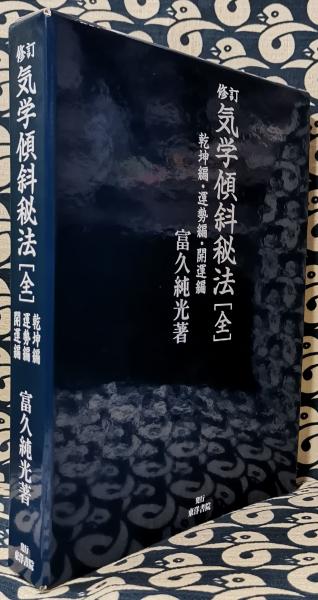 修訂
気学傾斜秘法［全］
乾坤編・運勢編・開運編
富久純光著
発行
東洋書院
修訂
気学傾斜秘法［全］
乾坤編
運勢編
開運編
富久純光著
発行
東洋書院